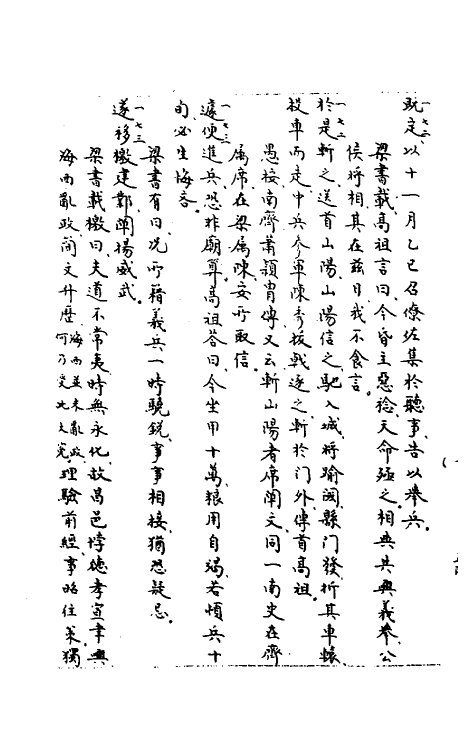 一七二
既定以十一月乙巳召僚佐集於聽事告以舉兵
梁書載高祖言曰今昏主惡稔天命殛之相與共興義舉公
侯將相其在茲日我不食言
一七二
於是斬之送首山陽山陽信之馳入城將踰閾縣門發折其車轅
投車而走中兵參軍陳秀拔戟逐之斬於門外傳首高祖
愚按南齊蕭穎胄傳又云斬山陽者席闡文同一南史在齊
屬席在梁屬陳安所取信
一七三
遽便進兵恐非廟算高祖荅曰今坐甲十萬糧用自竭若頓兵十
旬必生悔吝
梁書有曰况所藉義兵一時驍銳事事相接猶恐疑怠
一七三
遂移檄建鄴闡揚威武
梁書載檄曰夫道不常夷時無永化故昌邑悖德孝宣聿興
海西亂政簡文升歷 海西並未亂政何乃受此大冤 理驗前經事昭往策獨